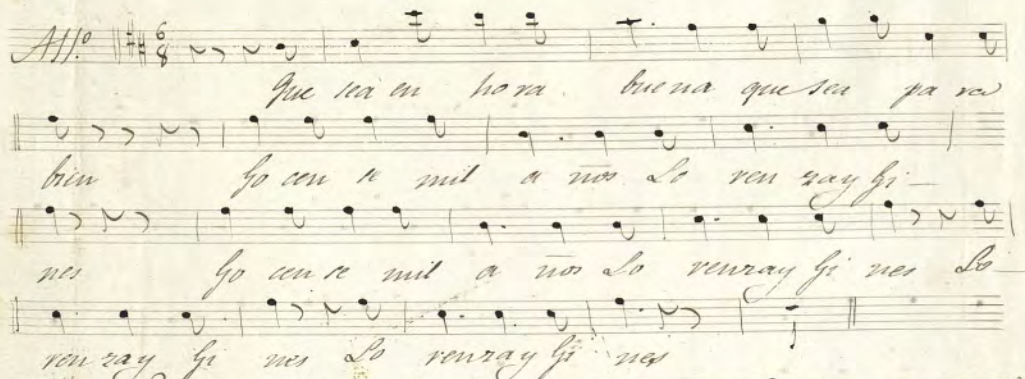 All.o 6/8
Que sea en hora buena que sea pa ra
bien Go cen se mil a ños Lo ren zay Gi-
nes Go cen se mil a ños Lo renzay Gi nes Lo-
renzay Gi nes Lo renzay Gi nes